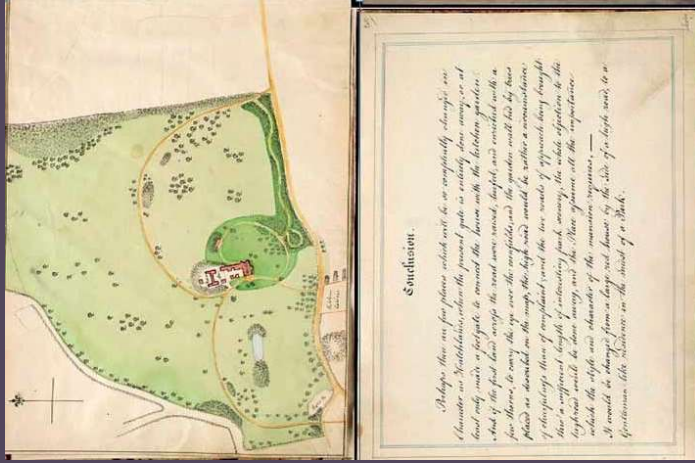 Conclusion.
Perhaps there are few places which will be so compleatly changed in
Character as Hatchlands, when the present gate is entirely done away, or at
least only made a foot gate to connect the house with the kitchen garden.
And if the first land across the road were raised, leased, and enriched with a
few thorns, to carry the eye over the cornfields, and the garden wall hid by trees
placed as described on the map, the high road would be rather a circumstance
of chearfulness than of complaint; and the two roads of approach being brought
thro' a sufficient length of interesting park scenery, the whole objection to the
high road would be done away, and the Place assume all the importance
which the style and character of the mansion requires. —
It would be changed from a large red house by the side of a high road, to a
Gentleman-like residence in the midst of a Park.
Kitchen
Garden